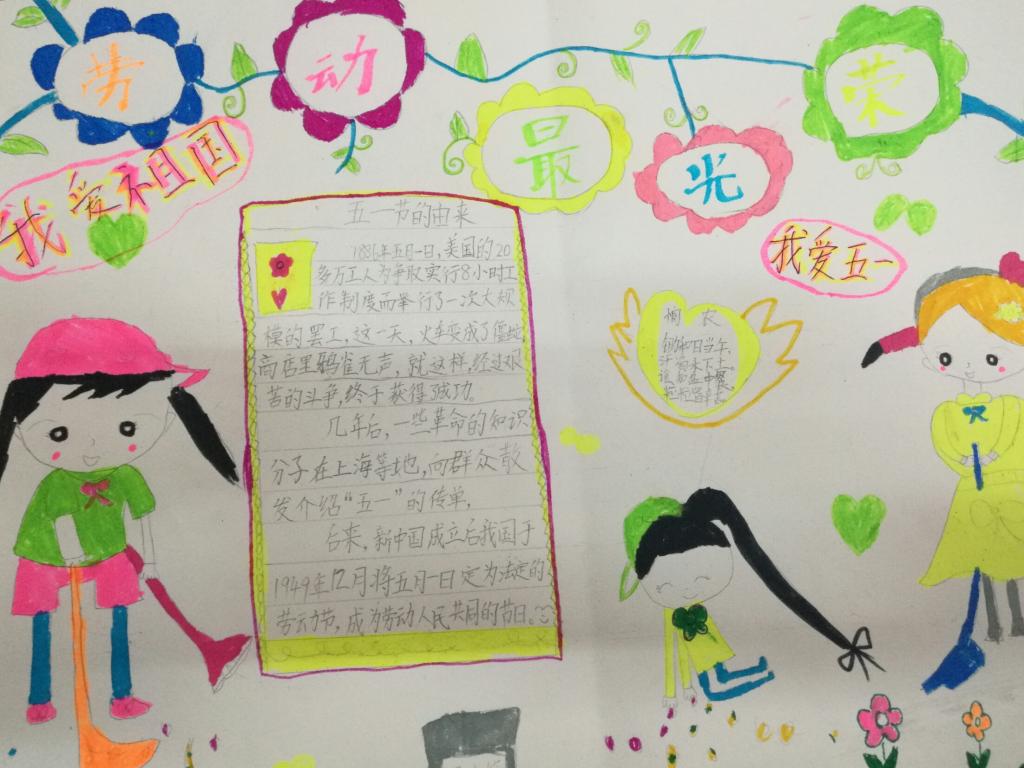 劳动最光荣
我爱祖国
我爱五一
五一节的由来
1886年五月一日,美国的20
多万工人为争取实行8小时工
作制度而举行了一次大规
模的罢工,这一天,火车变成了僵蛇,
商店里鸦雀无声,就这样,经过艰
苦的斗争,终于获得了成功。
几年后,一些革命的知识
分子在上海等地,向群众散
发介绍“五一”的传单,
后来,新中国成立后我国于
1949年12月将五月一日定为法定的
劳动节,成为劳动人民共同的节日。
悯农
锄禾日当午,
汗滴禾下土。
谁知盘中餐,